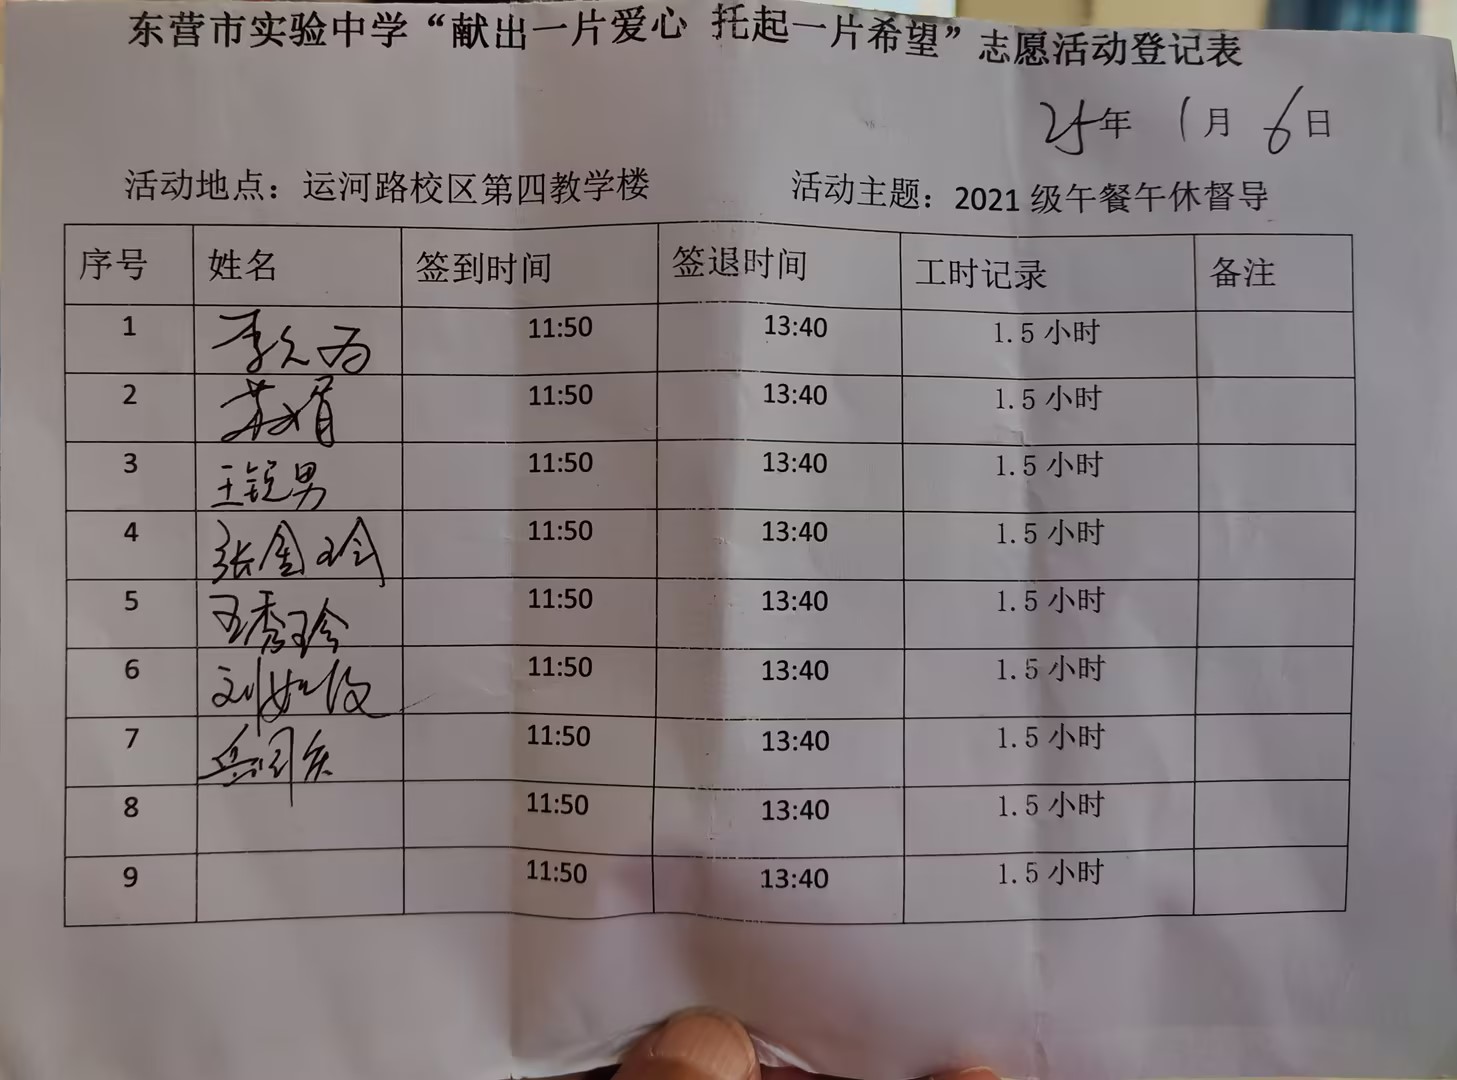 东营市实验中学“献出一片爱心 托起一片希望”志愿活动登记表
25年 1月 6日
活动地点：运河路校区第四教学楼 活动主题：2021级午餐午休督导
序号 姓名 签到时间 签退时间 工时记录 备注
1 李久为 11:50 13:40 1.5小时
2 苏娟 11:50 13:40 1.5小时
3 王锐男 11:50 13:40 1.5小时
4 张金玲 11:50 13:40 1.5小时
5 王秀珍 11:50 13:40 1.5小时
6 11:50 13:40 1.5小时
7 11:50 13:40 1.5小时
8 11:50 13:40 1.5小时
9 11:50 13:40 1.5小时